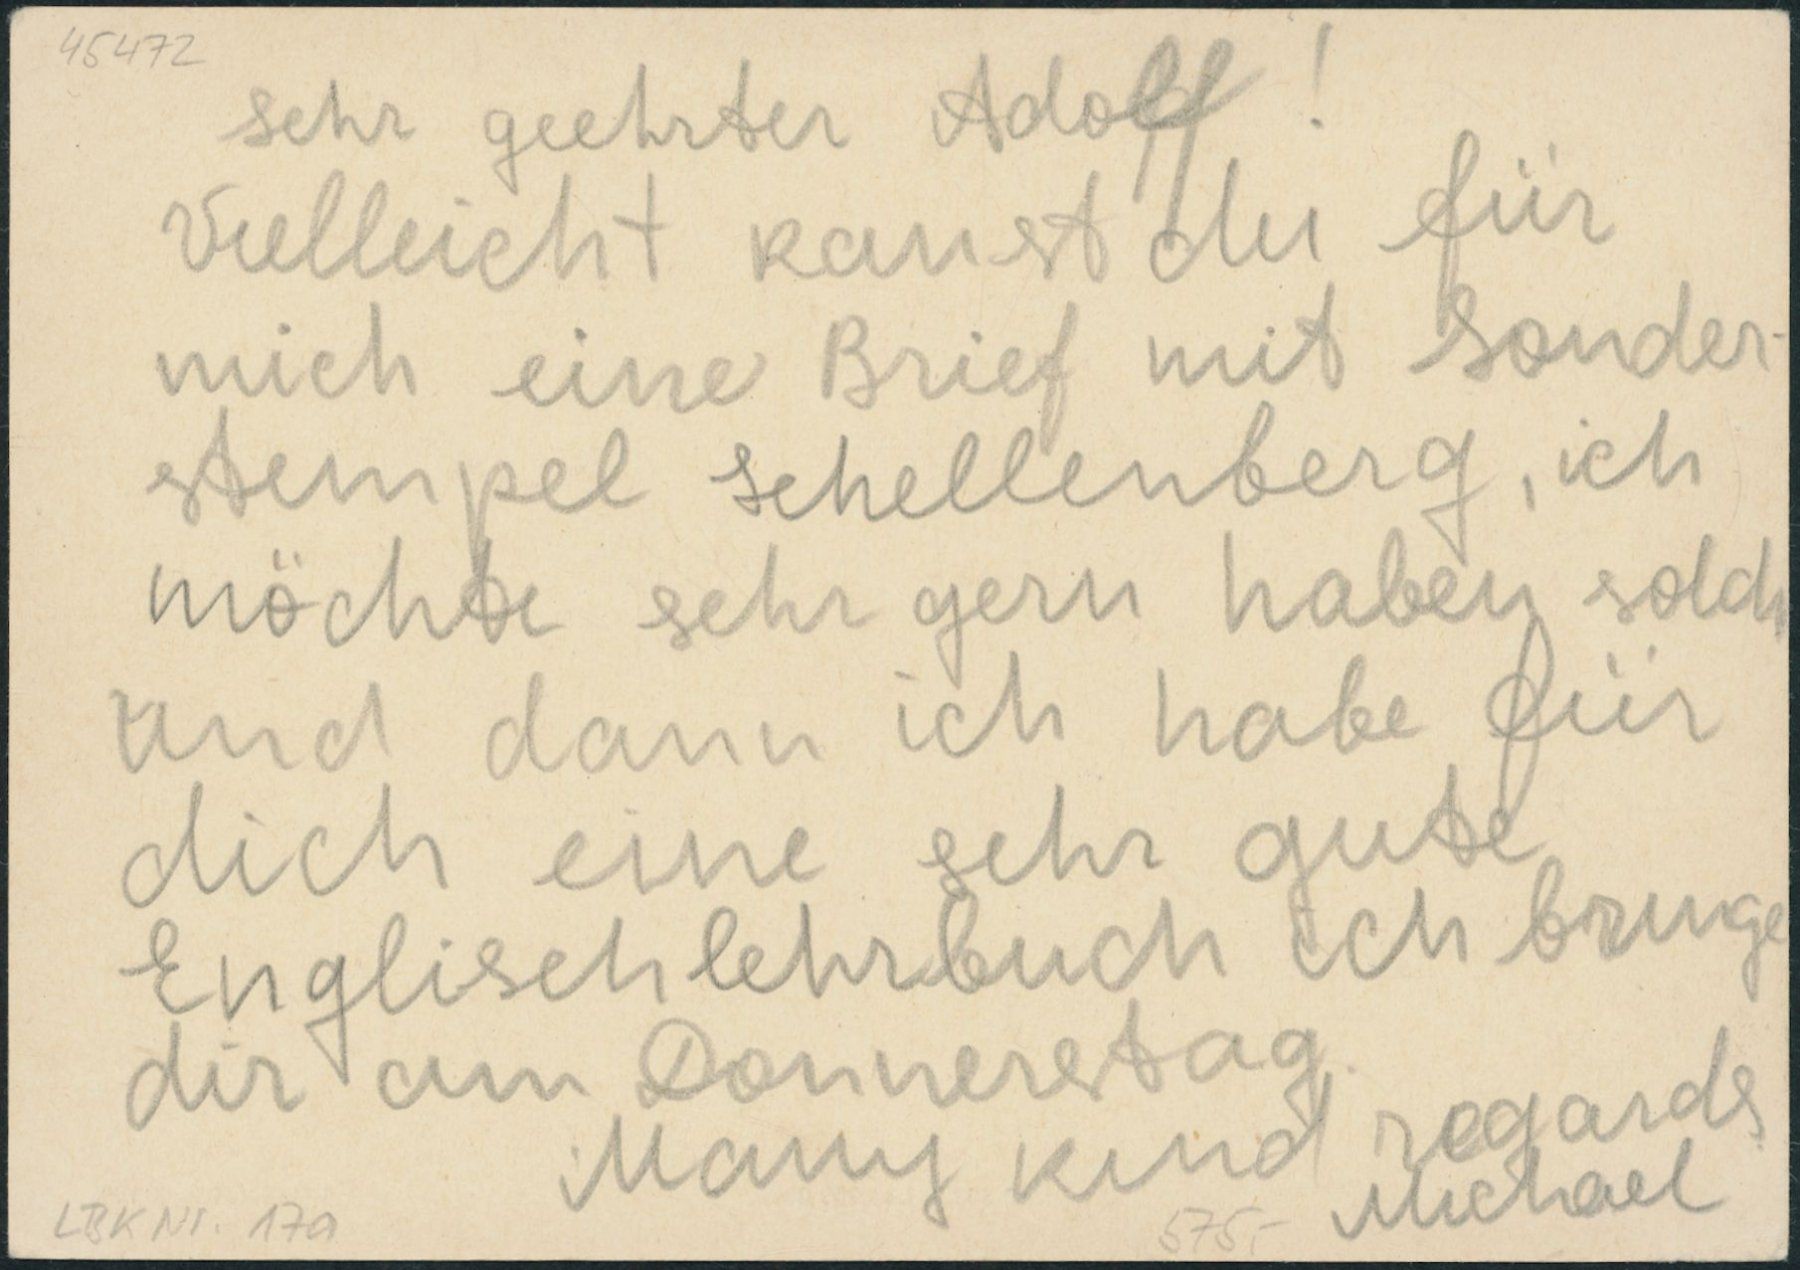 45472
sehr geehrter Adolf !
Vielleicht kanst du für
mich eine Brief mit Sonder-
stempel Schellenberg, ich
möchte sehr gern haben solch
und dann ich habe für
dich eine sehr gute
Englischlehrbuch ich bringe
dir am Donnerestag.
Many kind regards
Michael
LBK Nr. 17a
575,-